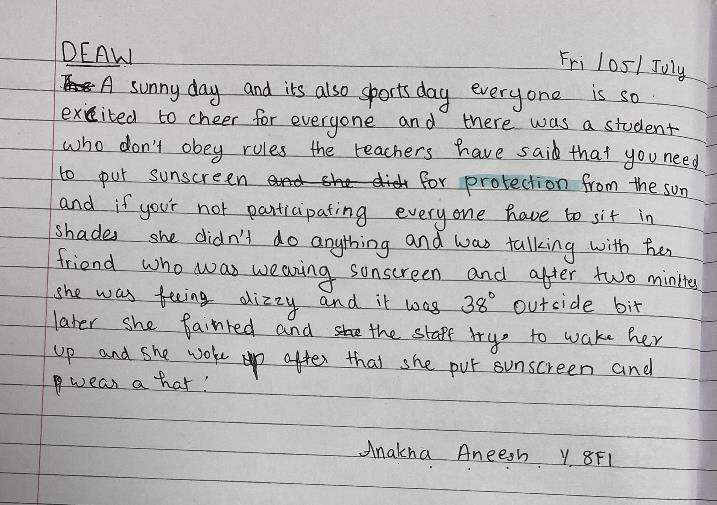 DEAW
Fri /05/ July
A sunny day and its also sports day everyone is so
excited to cheer for everyone and there was a student
who don't obey rules the teachers have said that you need
to put sunscreen and she didt for protection from the sun
and if your not participating everyone have to sit in
shades she didn't do anything and was talking with her
friend who was wearing sunscreen and after two minites
she was feeing dizzy and it was 38° outside bit
later she fainted and she the staff trys to wake her
up and she woke up after that she put sunscreen and
wear a hat!
Anakha Aneesh Y 8F1